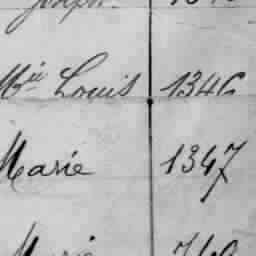 Joseph
Mie Louis 1346
Marie 1347
Marie